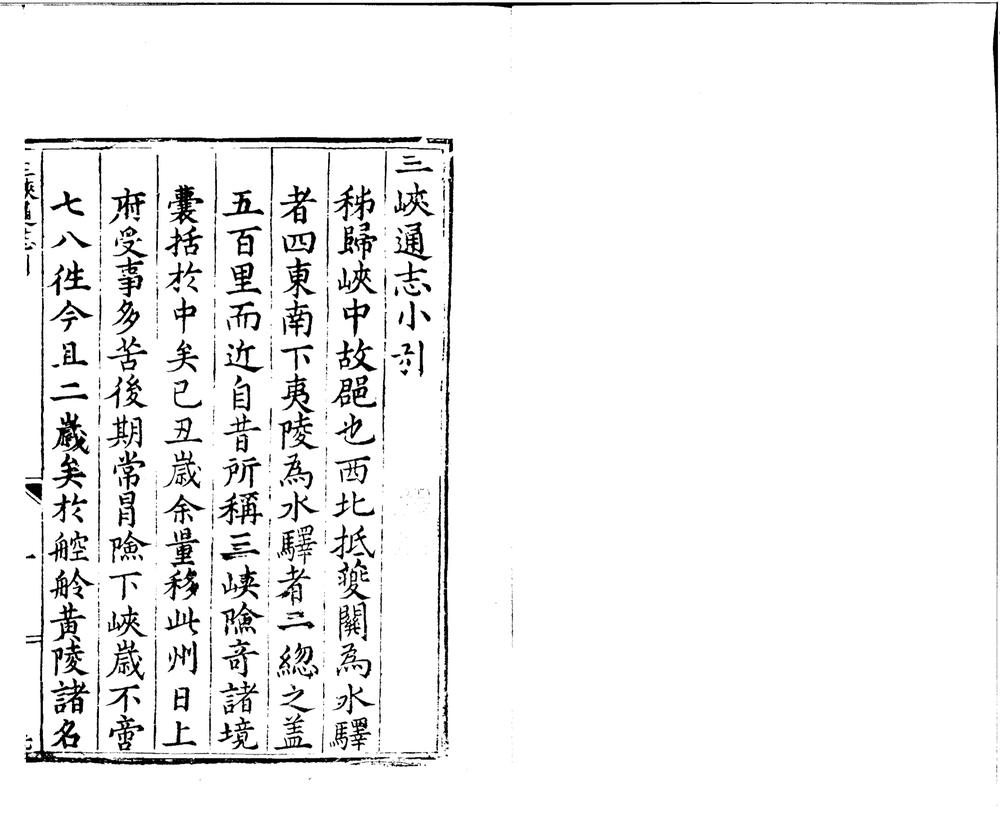 三峽通志小引
秭歸峽中故郡也西北抵夔關為水驛
者四東南下夷陵為水驛者三總之蓋
五百里而近自昔所稱三峽險奇諸境
囊括於中矣已丑歲余量移此州日上
府受事多苦後期常冒險下峽歲不啻
七八徃今且二歲矣於崆舲黃陵諸名
三峽通志引
一